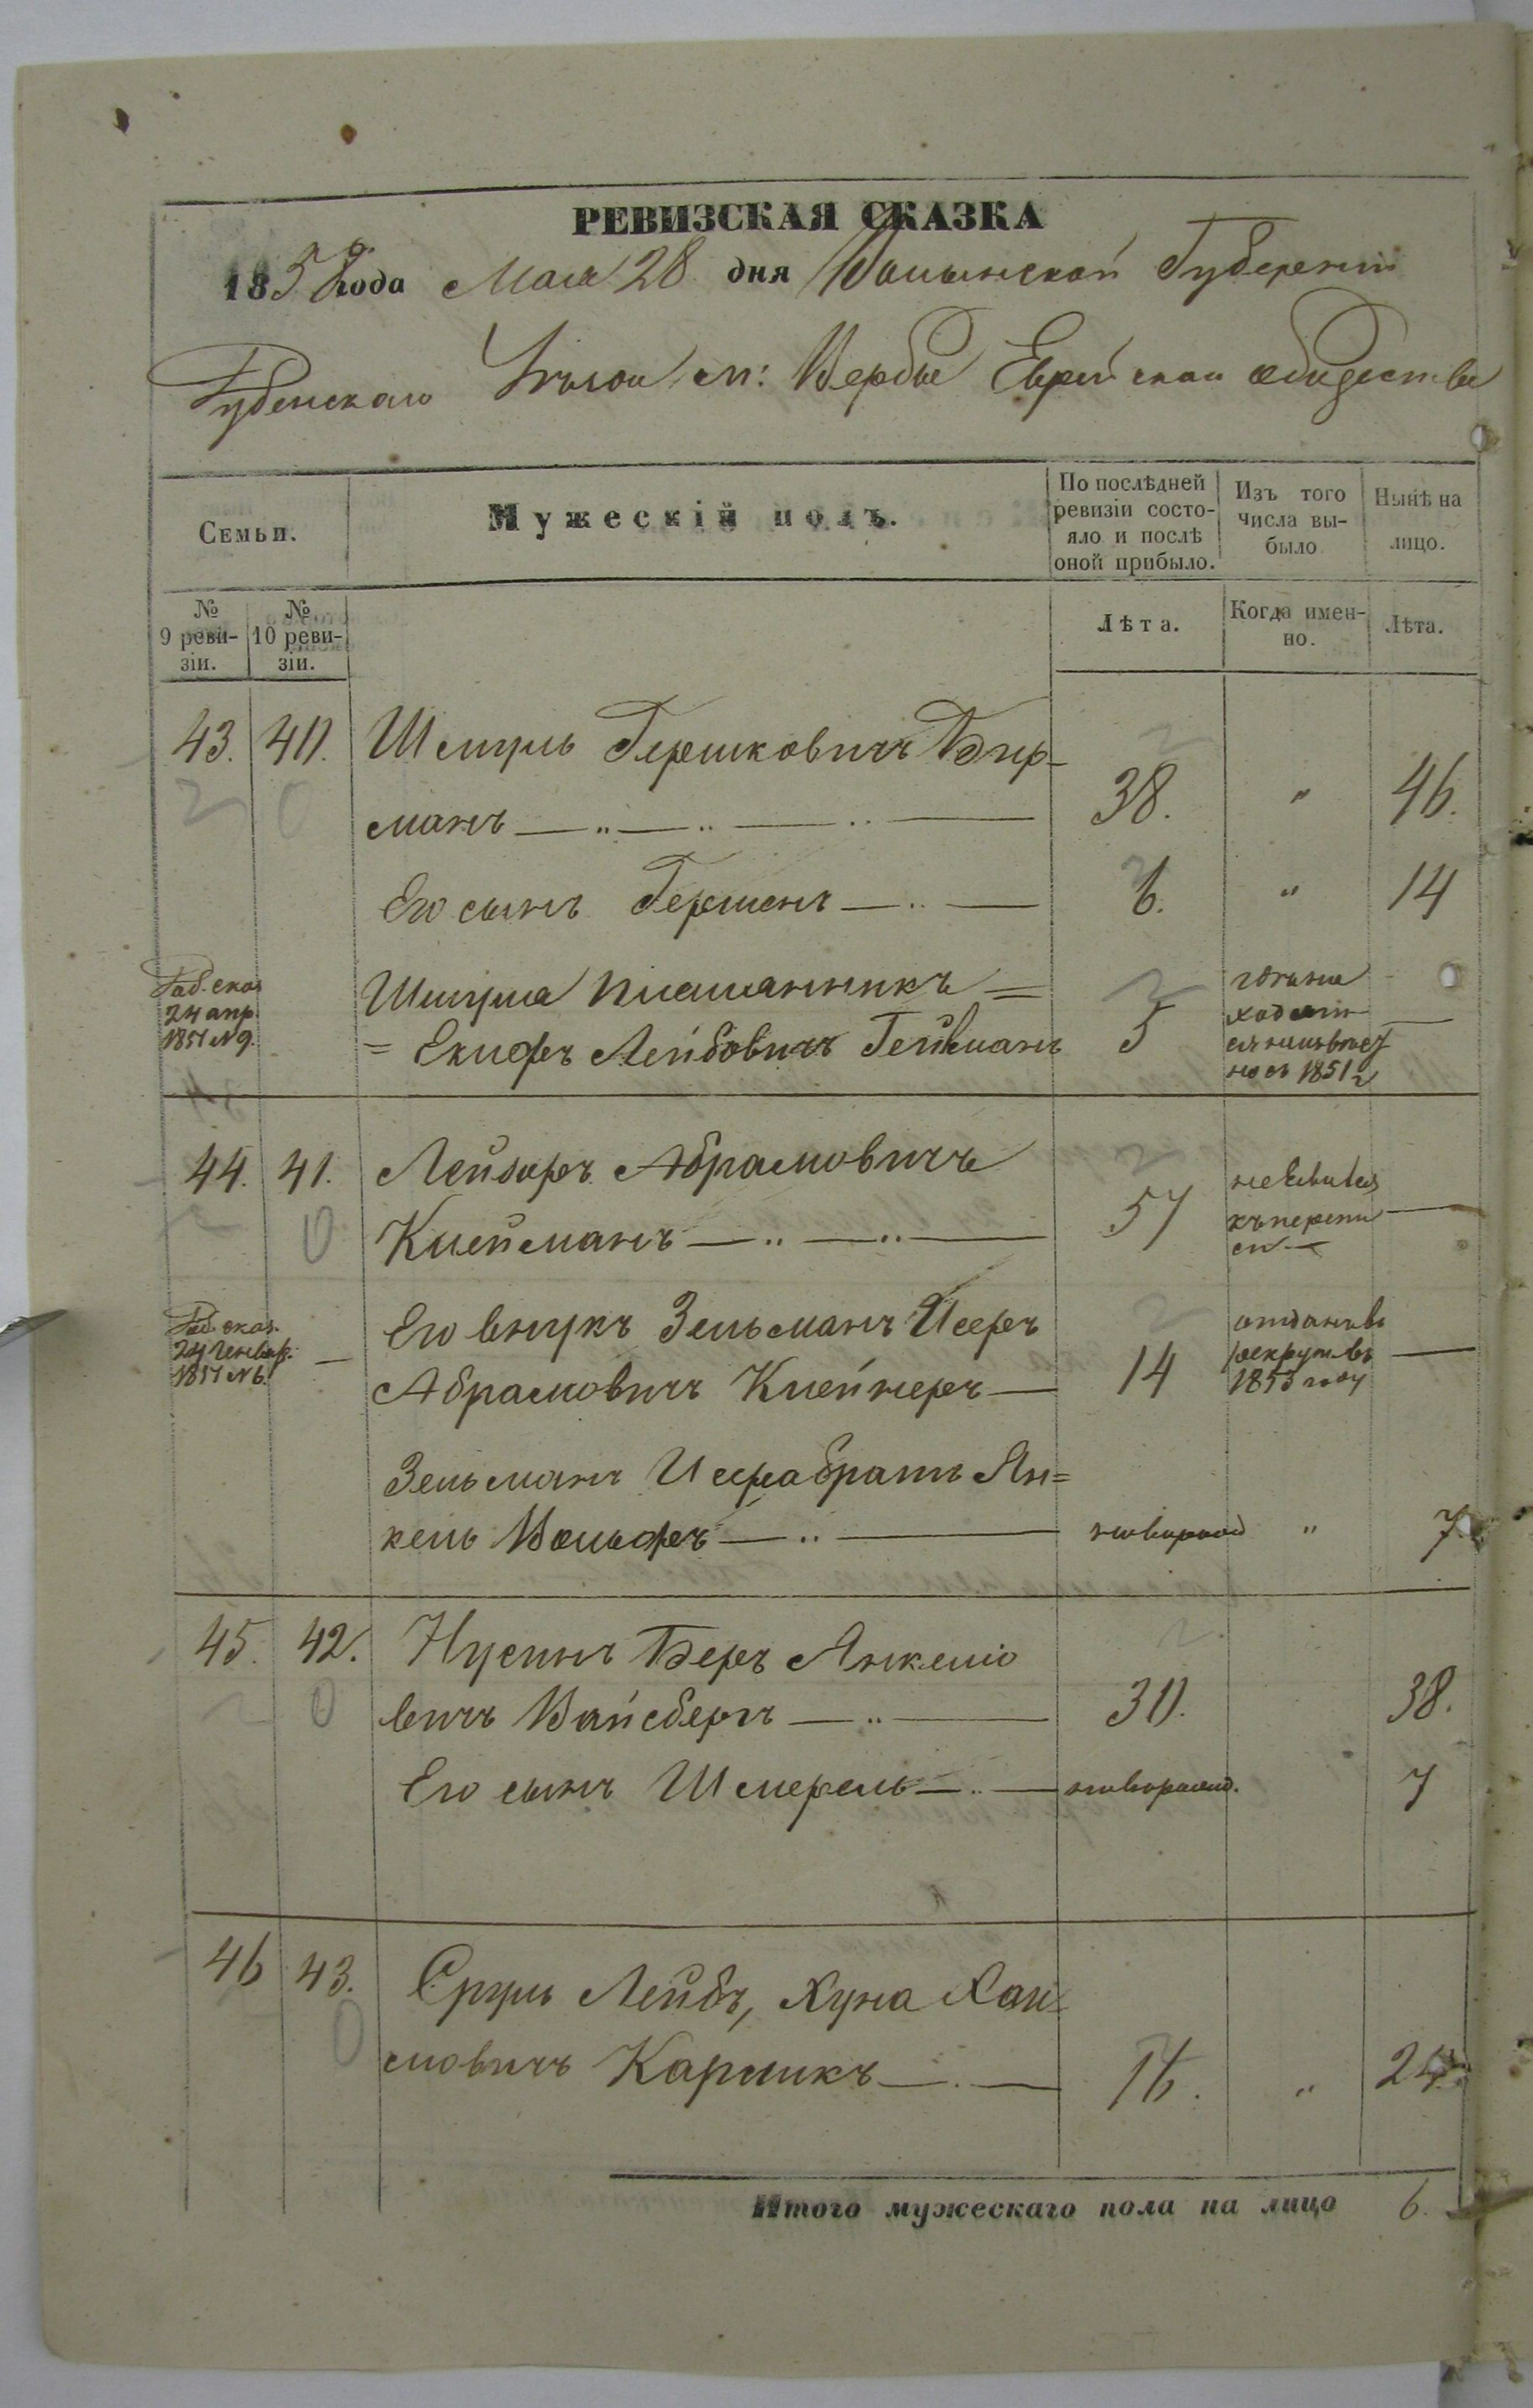 РЕВИЗСКАЯ СКАЗКА
1858 года Мая 28 дня Волынской Губернии
Дубенскаго Уезда м: Вербы Еврейскаго общества
Семьи.
Мужескій полъ.
По послѣдней ревизіи состо-
яло и послѣ оной прибыло.
Изъ того числа вы-
было
Нынѣ на лицо.
№ 9 реви-
зіи.
№ 10 реви-
зіи.
Лѣта.
Когда имен-
но.
Лѣта.
43. 40. Шмуль Гершковичъ Бир-
манъ 38. " 46.
Его сынъ Гершенъ 6. " 14
Раб. сказ.
24 апр.
1851 №9.
Шмуля племянникъ =
= Лейбовичъ 5
съ 1851
44. 41. Лейзоръ Абрамовичъ
Клейманъ 57
Раб. сказ.
24 Генвар.
1851 №6.
Его внукъ Зельманъ Исеръ
Абрамовичъ Клейнеръ 14
отданъ въ
рекруты въ
1853 году
Зельмана Исера братъ Ян=
кель Вольфъ новорожд " 7.
45. 42. Нусинъ Беръ Янкеліо
вичъ Вайсбергъ 30. 38.
Его сынъ Шмерель новорожд. 7
46 43. Сруль Лейбъ, Хуна Хаи-
мовичъ Карликъ 16. " 24.
Итого мужескаго пола на лицо 6.